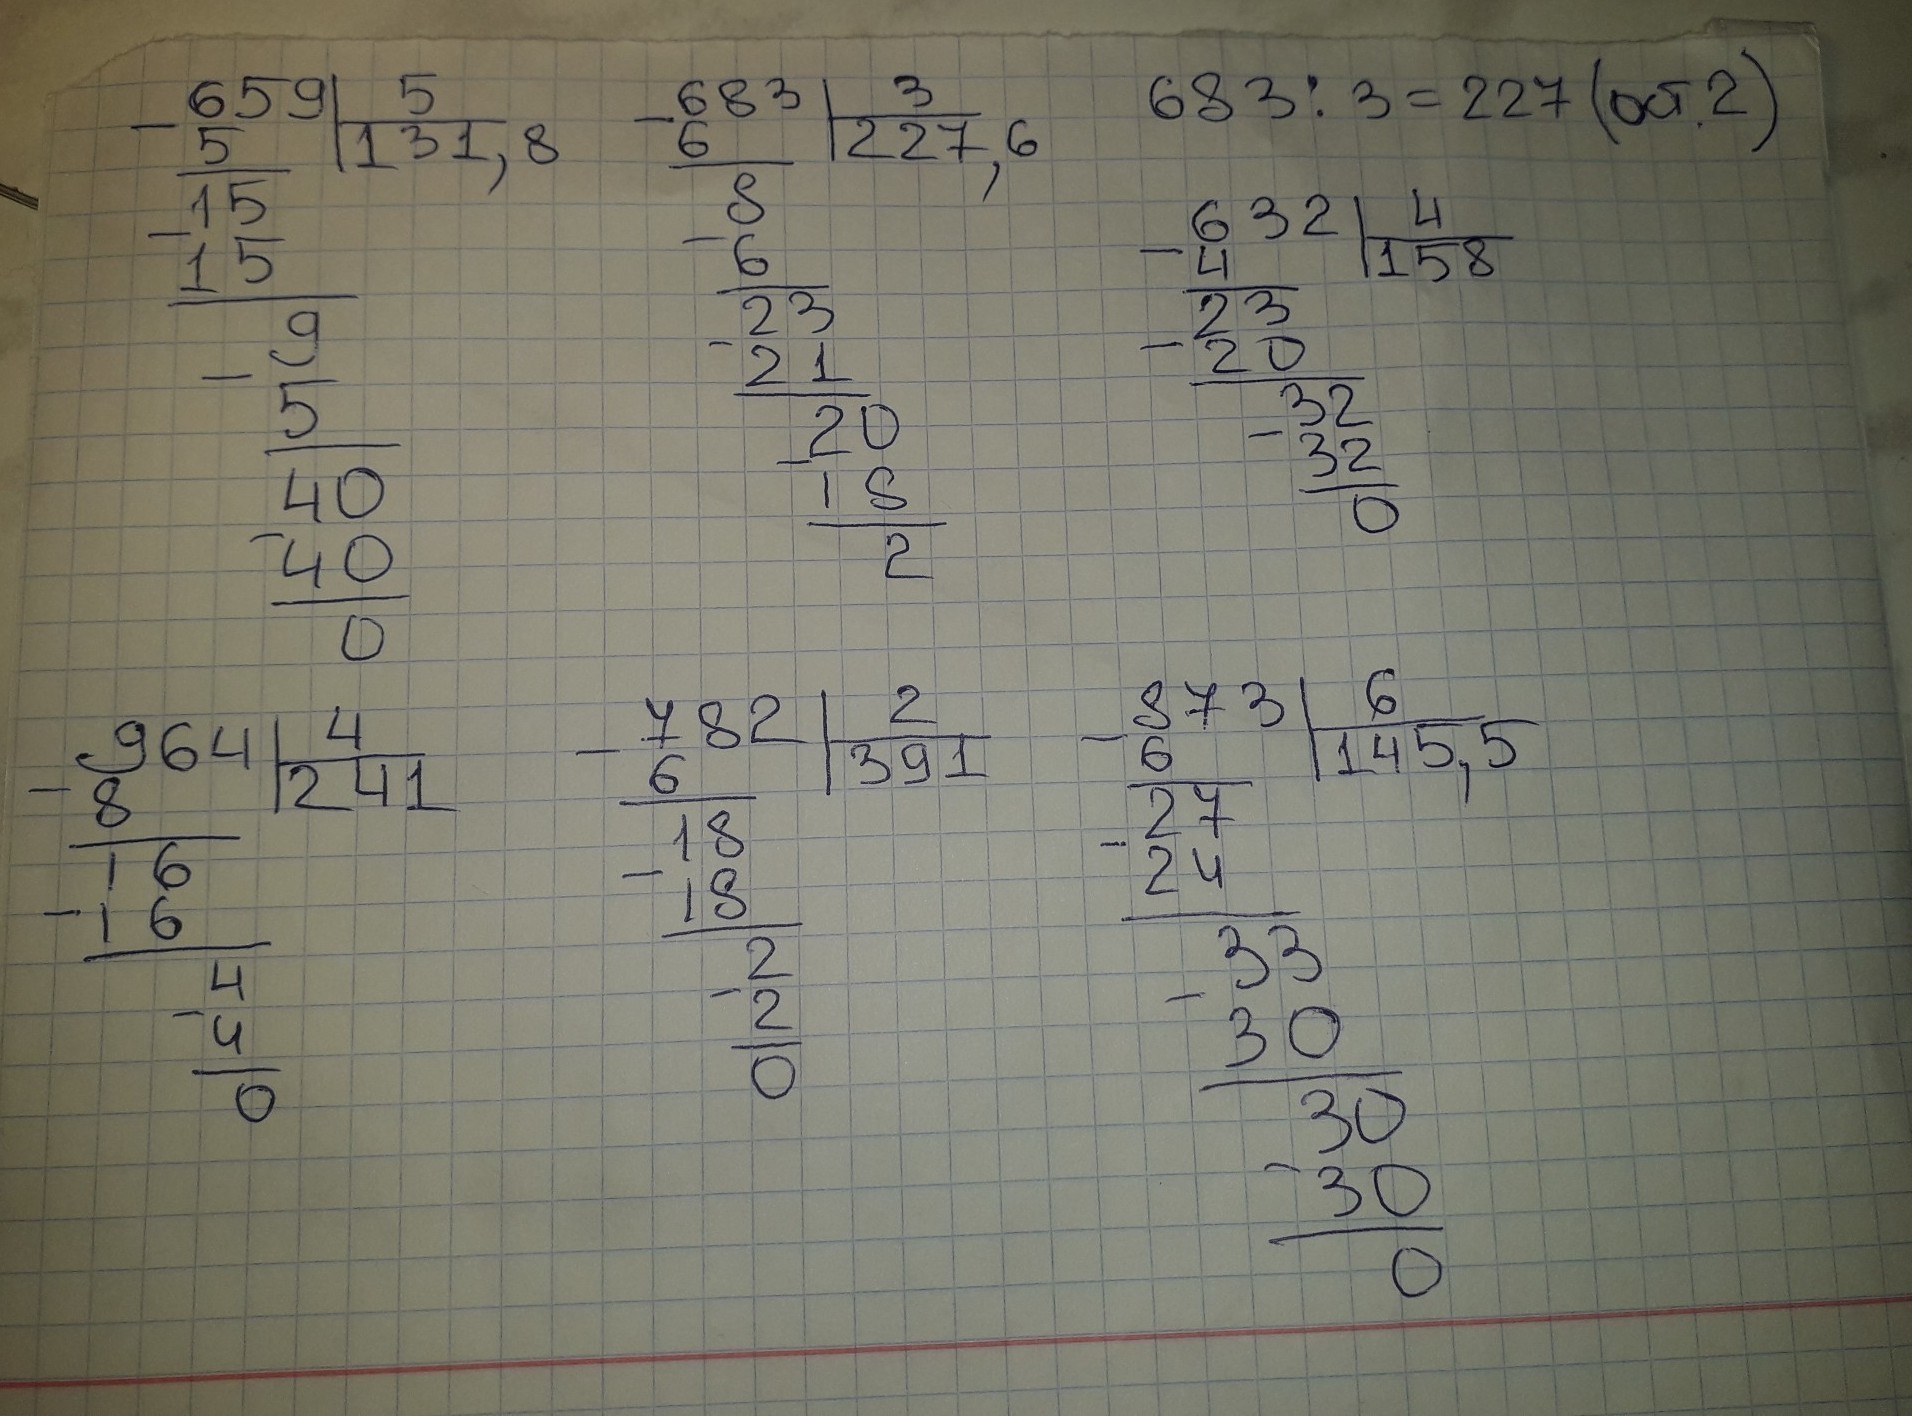 659 5
5 131,8
15
15
9
5
40
40
0
683 3
6 227,6
8
6
23
21
20
18
2
683:3=227(ост.2)
632 4
4 158
23
20
32
32
0
964 4
8 241
16
16
4
4
0
782 2
6 391
18
18
2
2
0
873 6
6 145,5
27
24
33
30
30
30
0